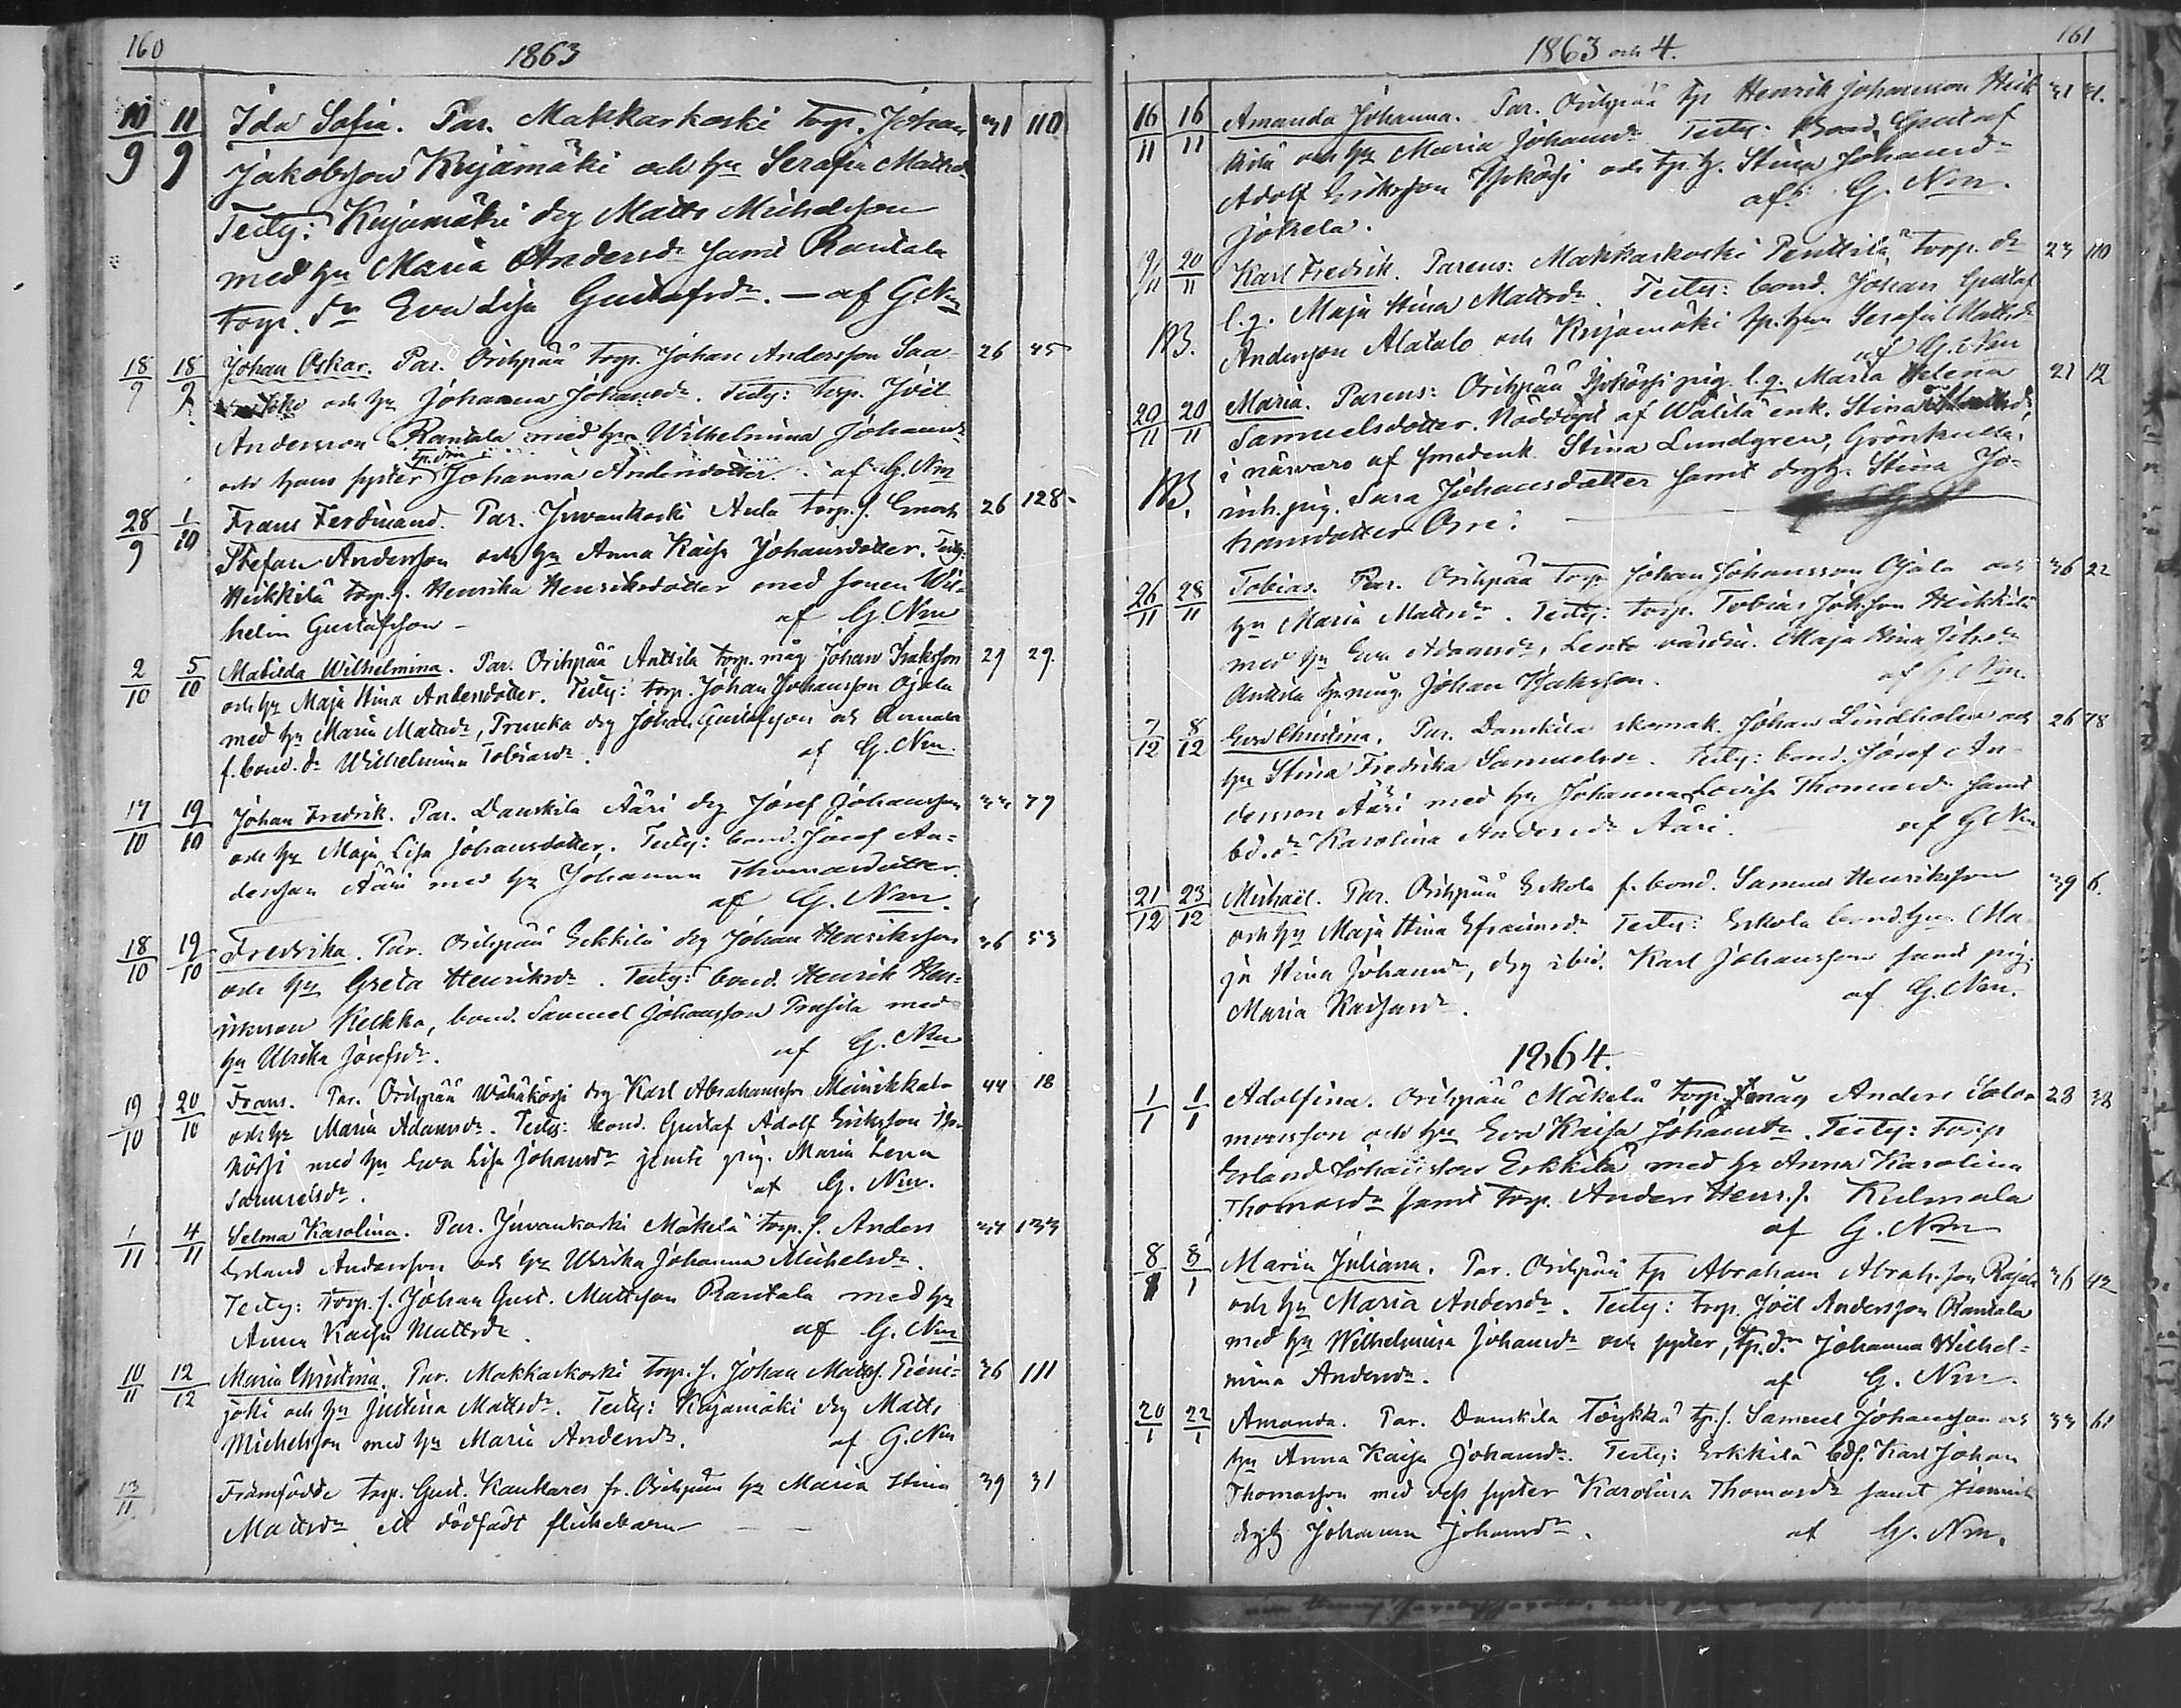 160
1863
10/9 11/9 Ida Sofia. Par. Makkarkoski torp. Johan 31 110
Jakobsson Kujamäki och hu Serafia Mattsdr
Testes: Kujamäki drg Matts Michelsson
med hu Maria Andersdr samt Rantala
torp. dr Eva Lisa Gustafsdr. — af G Nm
18/9 18/9 Johan Oskar. Par. Orihpää torp. Johan Andersson Saa- 26 45
och hu Johanna Johansdr. Testes: torp. Joël
Andersson Rantala med hu Wilhelmina Johansdr
och hans syster tp.drn Johanna Andersdotter. af G. Nm
28/9 1/10 Frans Ferdinand. Par. Juvankoski Aula torp. s. Enoch 26 128.
Stefan Andersson och hu Anna Kaisa Johansdotter. Testes:
Heikkilä torp. h. Henrika Henriksdotter med sonen Wil-
helm Gustafsson — af G. Nm
2/10 5/10 Matilda Wilhelmina. Par. Orihpää Anttila torp. måg Johan Isaksson 29 29.
och hu Maja Stina Andersdotter. Testes: torp. Johan Johansson Ojala
med hu Maria Mattsdr, Pruska drg Johan Gustafsson och Annala
f. bond. dr Wilhelmina Tobiasdr. af G. Nm.
17/10 19/10 Johan Fredrik. Par. Danskila Ääri drg Josef Johansson 33 77
och hu Maja Lisa Johansdotter. Testes: bond. Josef An-
dersson Ääri med hu Johanna Thomasdotter.
af G. Nm.
18/10 19/10 Fredrika. Par. Orihpää Erkkilä drg Johan Henriksson 36 53
och hu Greta Henriksdr. Testes: bond. Henrik Hen-
riksson Kelkka, bond. Samuel Johansson Prusila med
hu Ulrika Josefsdr. af G. Nm
19/10 20/10 Frans. Par. Orihpää Wähäkörsi drg Karl Abrahamsson Mainikkala 44 18
och hu Maria Adamsdr. Testes: bond. Gustaf Adolf Eriksson Iso-
körsi med hu Eva Lisa Johansdr jemte pig. Maria Lena
Samuelsdr. af G. Nm.
1/11 4/11 Selma Karolina. Par. Juvankoski Mäkelä torp. s. Anders 34 133
Erland Andersson och hu Ulrika Johanna Michelsdr.
Testes: torp. s. Johan Gust. Mattsson Rantala med hu
Anna Kaisa Mattsdr. af G. Nm
10/11 12/12 Maria Christina. Par. Makkarkoski torp. s. Johan Matts. Pieni- 36 111
joki och hu Justina Mattsdr. Testes: Kujamäki drg Matts
Michelsson med hu Maria Andersdr. af G. Nm
13/11 Framfödde torp. Gust. Kankares fr. Orihpää hu Maria Stina 39 31
Mattsdr ett dödfödt flickebarn — —
1863 och 4.
161
16/11 16/11 Amanda Johanna. Par. Orihpää tp Henrik Johansson Heik- 31 21.
kilä och hu Maria Johansdr Testes: Bond. Gustaf
Adolf Eriksson Isokörsi och tp. h. Stina Johansdr
Jokela. af G. Nm.
20/11 Karl Fredrik. Parens: Makkarkoski Penttilä torp. dr 23 110
l. q. Maja Stina Mattsdr. Testes: bond. Johan Gustaf
Andersson Alatalo och Kujamäki tp. hu Serafia Mattsdr
af G. Nm
20/11 20/11 Maria. Parens: Orihpää Isokörsi pig. l. q. Maria Helena 21 12
Samuelsdotter. Nöddöpt af Walila enk. Stina
i närvaro af smedenk. Stina Lundgren, Grönkulla
inh. pig. Sara Johansdotter samt drg h. Stina Jo-
hansdotter Orre.
26/11 28/11 Tobias. Par. Orihpää torp Johan Johansson Ojala och 36 22
hu Maria Mattsdr. Testes: torp. Tobias Johsson Heikkilä
med hu Eva Adamsdr, Lento värdin. Maja Stina Johsdr
Anttila tp. måg. Johan Isaksson. af G. Nm.
7/12 8/12 Eva Christina. Par. Danskila skomak. Johan Lindholm och 26 78
hu Stina Fredrika Samuelsdr. Testes: bond. Josef An-
dersson Ääri med hu Johanna Lovisa Thomasdr samt
bd. dr Karolina Andersdr Ääri. af G Nm
21/12 23/12 Michaël. Par. Orihpää Eskola f. bond. Samuel Henriksson 39 6.
och hu Maja Stina Efraimsdr Testes: Eskola bond. hu Ma-
ja Stina Johansdr, drg ibid. Karl Johansson samt pig.
Maria Karlsdr. af G. Nm.
1864.
1/1 1/1 Adolfina. Orihpää Mäkelä torp. måg Anders Salo- 28 38
monsson och hu Eva Kaisa Johansdr. Testes: torp
Erland Johansson Erkkilä med hu Anna Karolina
Thomasdr samt torp. Anders Henr. s. Kulmala
af G. Nm
8/1 9/1 Maria Juliana. Par. Orihpää tp Abraham Abrah. son Rajala 36 42
och hu Maria Andersdr. Testes: torp. Joël Andersson Rantala
med hu Wilhelmina Johansdr och syster, tp. dr Johanna Wilhel-
mina Andersdr. af G. Nm.
20/1 22/1 Amanda. Par. Danskila Töykkä tp. s. Samuel Johansson och 33 61
hu Anna Kaisa Johansdr. Testes: Erkkilä bds. Karl Johan
Thomasson med dess syster Karolina Thomasdr samt
drg h Johanna Johansdr. af G. Nm.